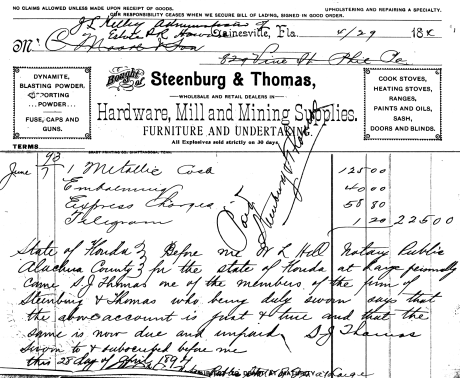 NO CLAIMS ALLOWED UNLESS MADE UPON RECEIPT OF GOODS.
UPHOLSTERING AND REPAIRING A SPECIALTY.
OUR RESPONSIBILITY CEASES WHEN WE SECURE BILL OF LADING, SIGNED IN GOOD ORDER.
J L Kelley Administrator of
Estate Gainesville, Fla. 5/29 189
M C Moore & Son
829 Vine St Phil Pa
Bought of Steenburg & Thomas,
WHOLESALE AND RETAIL DEALERS IN
Hardware, Mill and Mining Supplies.
FURNITURE AND UNDERTAKING.
All Explosives sold strictly on 30 days
DYNAMITE,
BLASTING POWDER,
SPORTING
...POWDER...
FUSE, CAPS AND
GUNS.
COOK STOVES,
HEATING STOVES,
RANGES,
PAINTS AND OILS,
SASH,
DOORS AND BLINDS.
TERMS
93
June 7 1 Metallic Cask 125 00
Embalming 40 00
Express Charges 58 80
Telegram 1 20 225 00
Paid
Steenburg & Thomas
State of Florida } Before me W L Hill Notary Public
Alachua County } for the state of Florida at Large personally
came S J Thomas one of the members of the firm of
Steenburg & Thomas who being duly sworn says that
the above account is just & true and that the
same is now due and unpaid S J Thomas
Sworn to & subscribed before me
this 28 day of April 1894